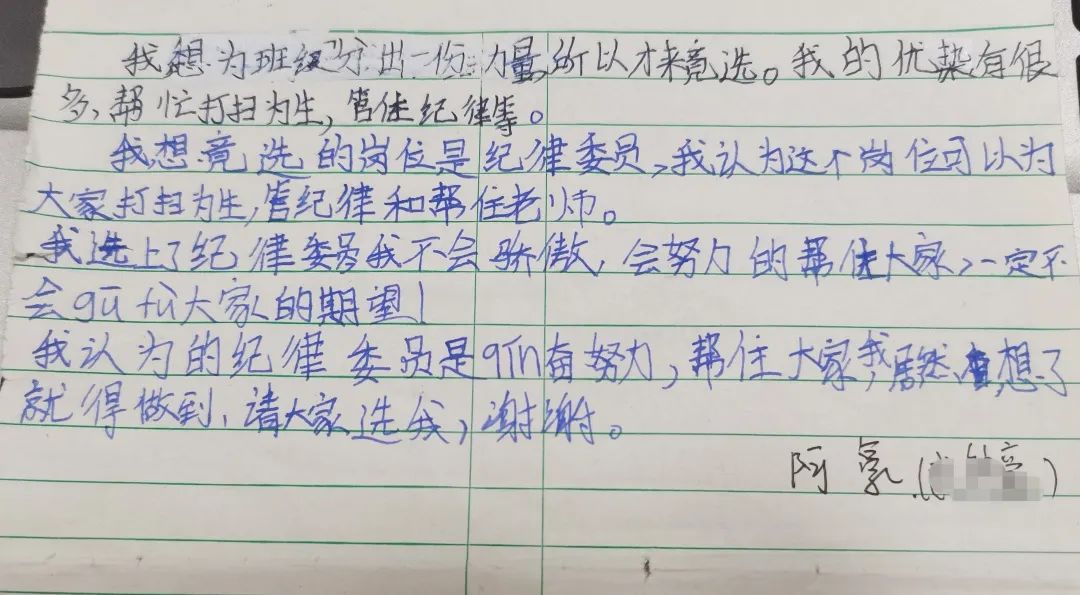 我想为班级分出一份力量所以才来竟选。我的优桨有很
多,帮忙打扫为生,管住纪律等。
我想竟选的岗位是纪律委员,我认为这个岗位可以为
大家打扫为生,管纪律和帮住老师。
我选上了纪律委员我不会骄傲,会努力的帮住大家,一定不
会gū fù大家的期望!
我认为的纪律委员是qín奋努力,帮住大家,我居然想了
就得做到,请大家选我,谢谢。
阿氧(